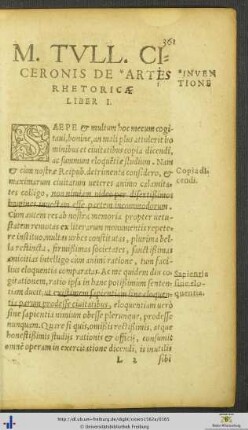 361
M. TVLL. CI-
CERONIS DE *ARTE
RHETORICÆ
LIBER I.
*INVEN
TIONE
SAEPE & multum hoc mecum cogi-
taui, bonine, an mali plus attulerit ho
minibus et ciuitatibus copia dicendi,
ac summum eloquētiæ studium. Nam
& cùm nostræ Reipub. detrimenta considero, &
maximarum ciuitatum ueteres animo calamita-
tes colligo, non minimam uideo per disertissimos
homines inuectam esse partem incommodorum.
Cùm autem res ab nostra memoria propter uetu-
statem remotas ex literarum monumentis repete-
re instituo, multas urbes constitutas, plurima bel-
la restincta, firmissimas societates, sanctissimas
amicitias intelligo cum animi ratione, tum faci-
lius eloquentia comparatas. Ac me quidem diu co-
gitantem, ratio ipsa in hanc potissimùm senten-
tiam ducit, ut existimem sapientiam sine eloquen-
tia parum prodesse ciuitatibus, eloquentiam uerò
sine sapientia nimium obesse plerunque, prodesse
nunquam. Quare si quis, omissis rectissimis, atque
honestissimis studijs rationis & officij, consumit
omnē operam in exercitatione dicendi, is inutilis
Copia di-
cendi.
Sapientia
sine elo-
quentia.
L 2 sibi
© Universitätsbibliothek Freiburg